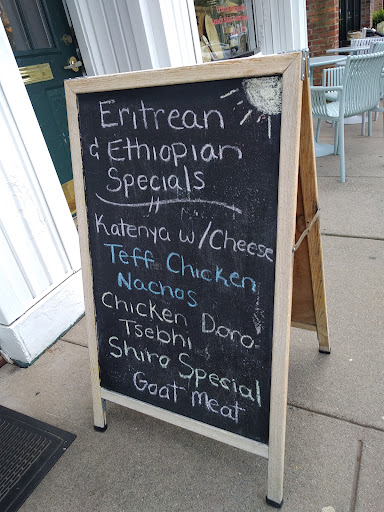 Eritrean
& Ethiopian
Specials
Katenya w/Cheese
Teff Chicken
Nachos
Chicken Doro
Tsebhi
Shiro Spesial
Goat Meat